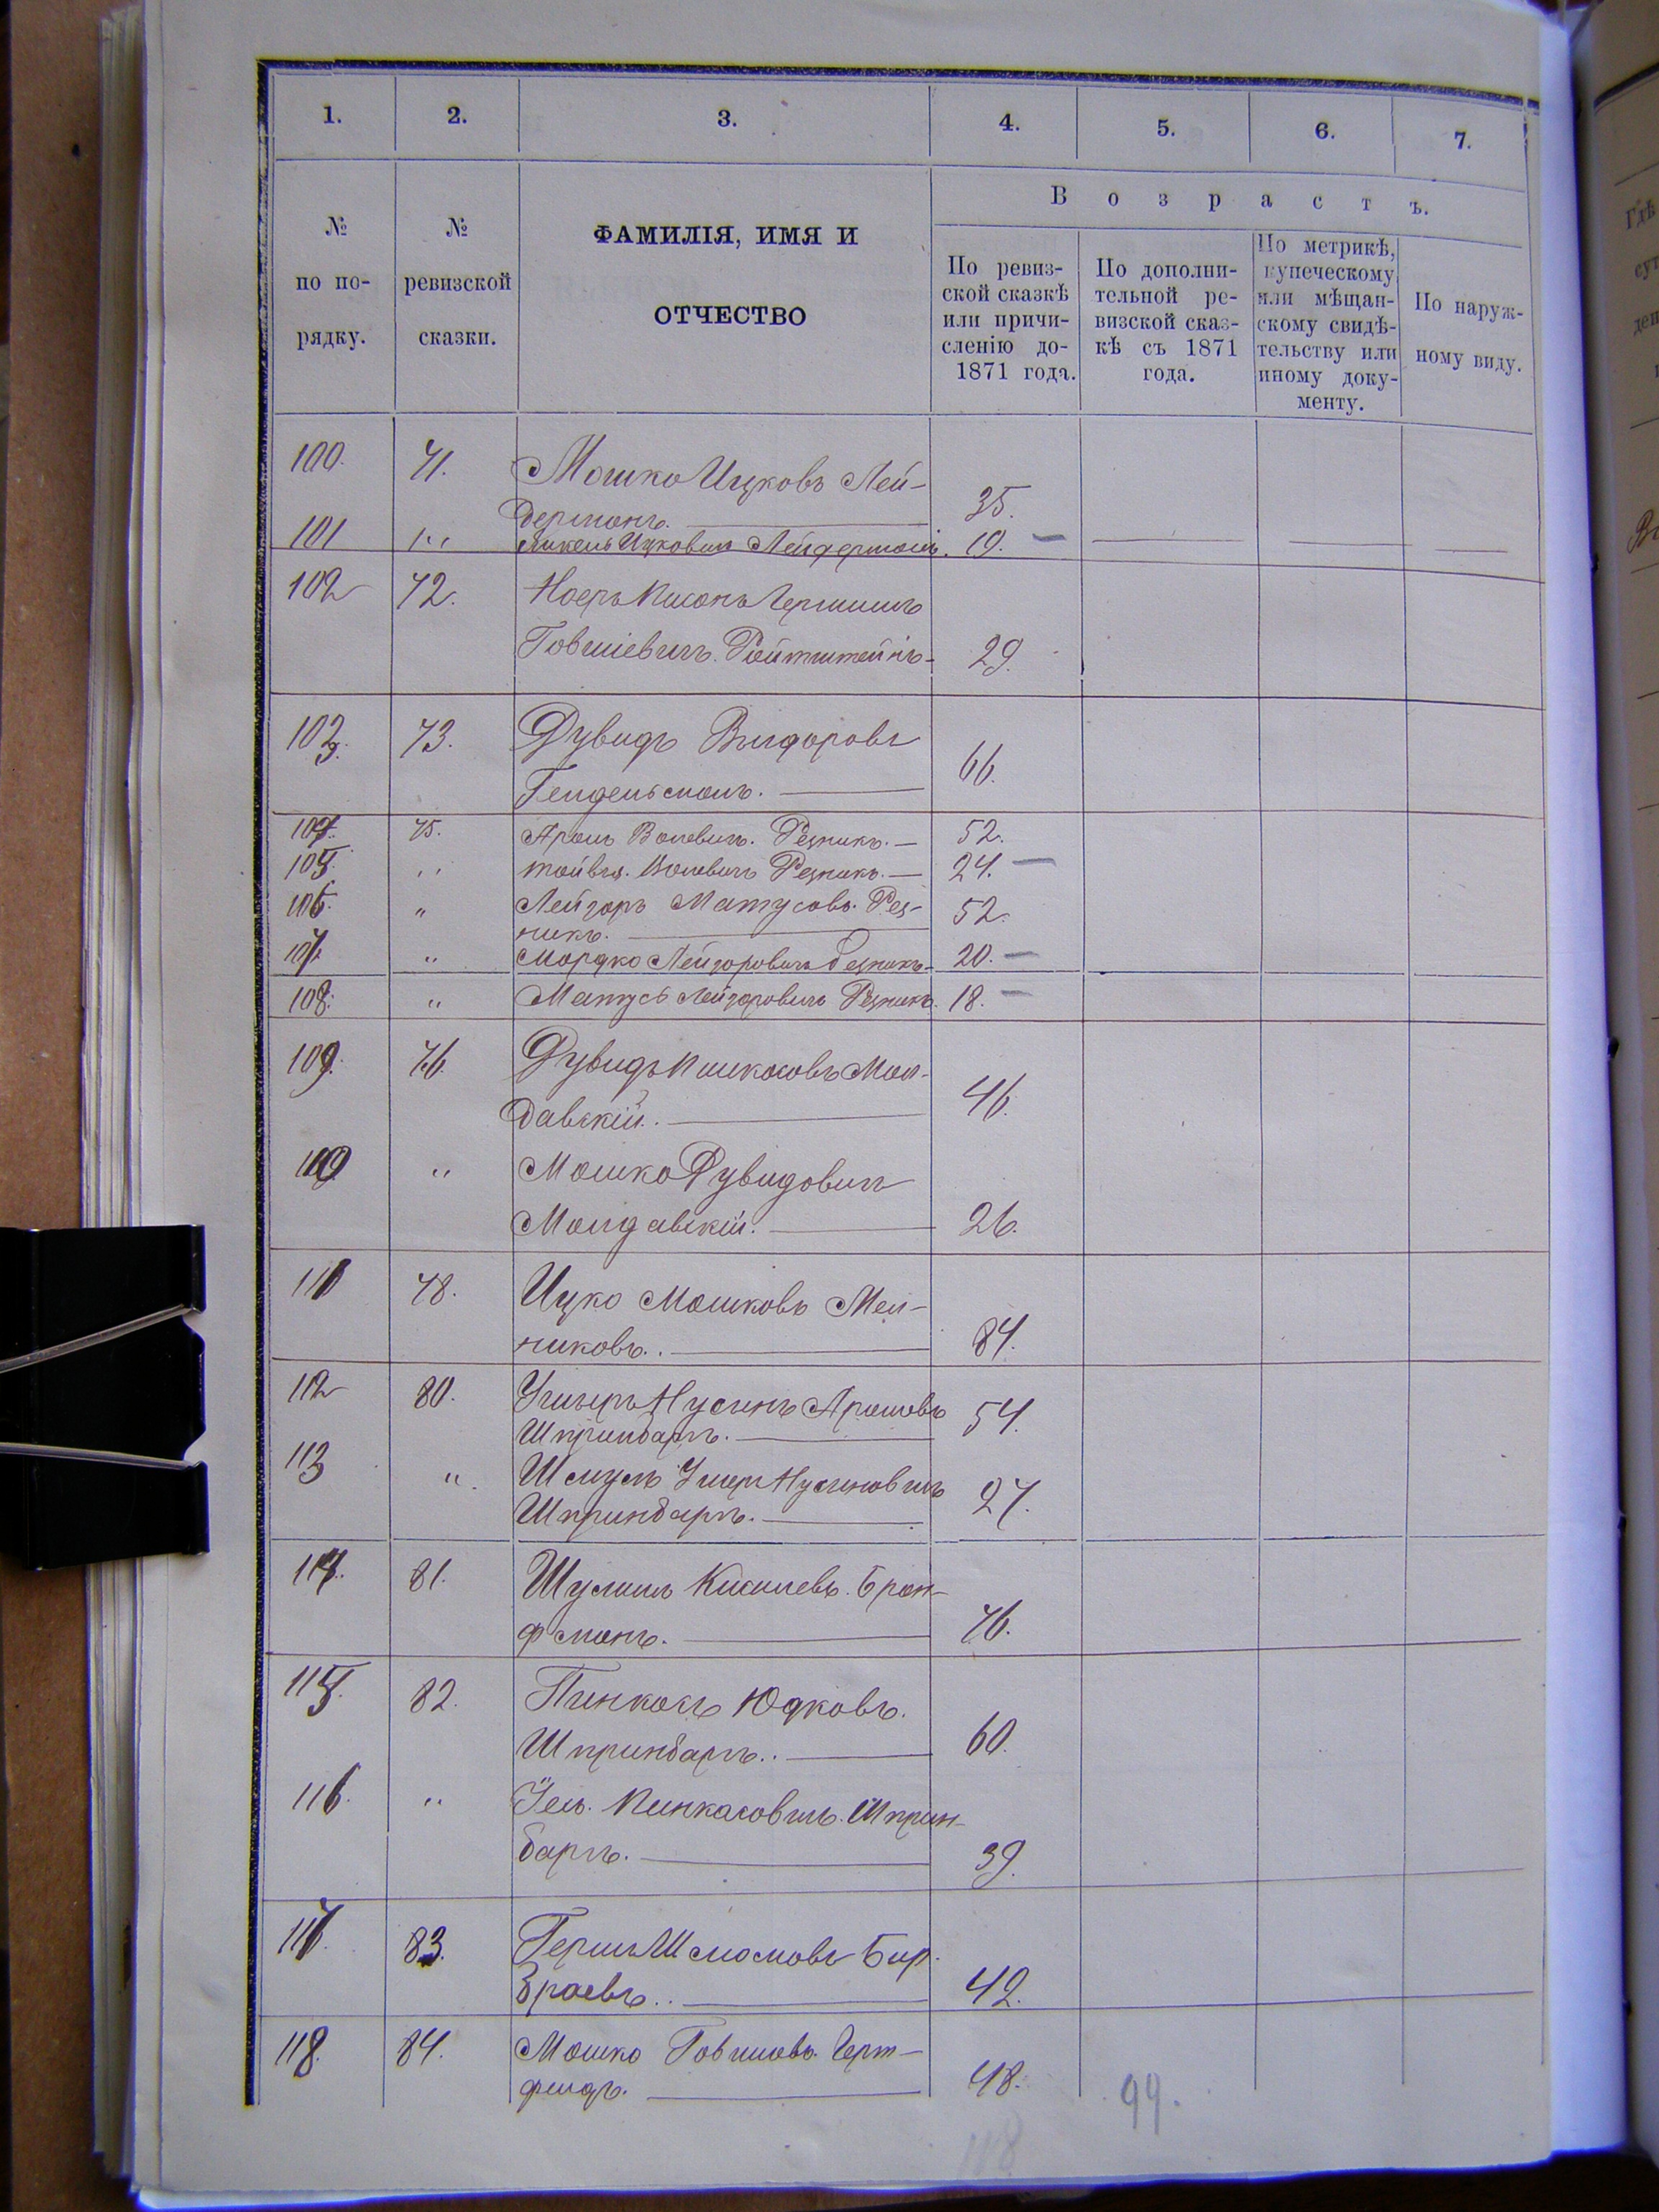 1. 2. 3. 4. 5. 6. 7.
В о з р а с т ъ.
№ по по-рядку.
№ ревизской сказки.
ФАМИЛІЯ, ИМЯ И
ОТЧЕСТВО
По ревиз-
ской сказкѣ
или причи-
сленію до-
1871 года.
По дополни-
тельной ре-
визской сказ-
кѣ съ 1871
года.
По метрикѣ,
купеческому
или мѣщан-
скому свидѣ-
тельству или
иному доку-
менту.
По наруж-
ному виду.
100. 71. Мошко Ицковъ Лей-
дерманъ. 35.
101 " Янкель Ицковичъ Лейдерманъ. 19.
102 72. Гершъ
Говшіевичъ Ройтштейнъ 29.
103. 73. Дувидъ Вигдоровъ
Гендельманъ. 66.
104. 75. Аронъ Волевичъ. Резникъ. 52.
105. " Тойвія. Волевичъ Резникъ. 24.
106. " Лейзоръ Матусовъ. Рез-
никъ. 52.
107. " Мордко Лейзоровичъ Резникъ 20.
108. " Матусъ Лейзоровичъ Резникъ. 18.
109. 76. Дувидъ Пинкасовъ Мол-
давскій. 46.
110 " Мошко Дувидовичъ
Молдавскій. 26.
111 78. Ицко Мошковъ Мел-
никовъ. 84.
112 80. Ушеръ Нусинъ Ароновъ
Шпринбаргъ. 54.
113 " Шмуль Ушеръ Нусиновичъ
Шпринбаргъ. 27.
114. 81. Шулимъ Кисилевъ. Брон-
фманъ. 76.
115. 82. Пинкасъ Юдковъ.
Шпринбаргъ. 60.
116. " Іель. Пинкасовичъ. Шприн-
баргъ. 39.
117. 83. Гершъ Шмомовъ Бир-
браевъ. 42.
118. 84. Мошко Говшіовъ. Герш-
фельдъ. 48.
99.
118